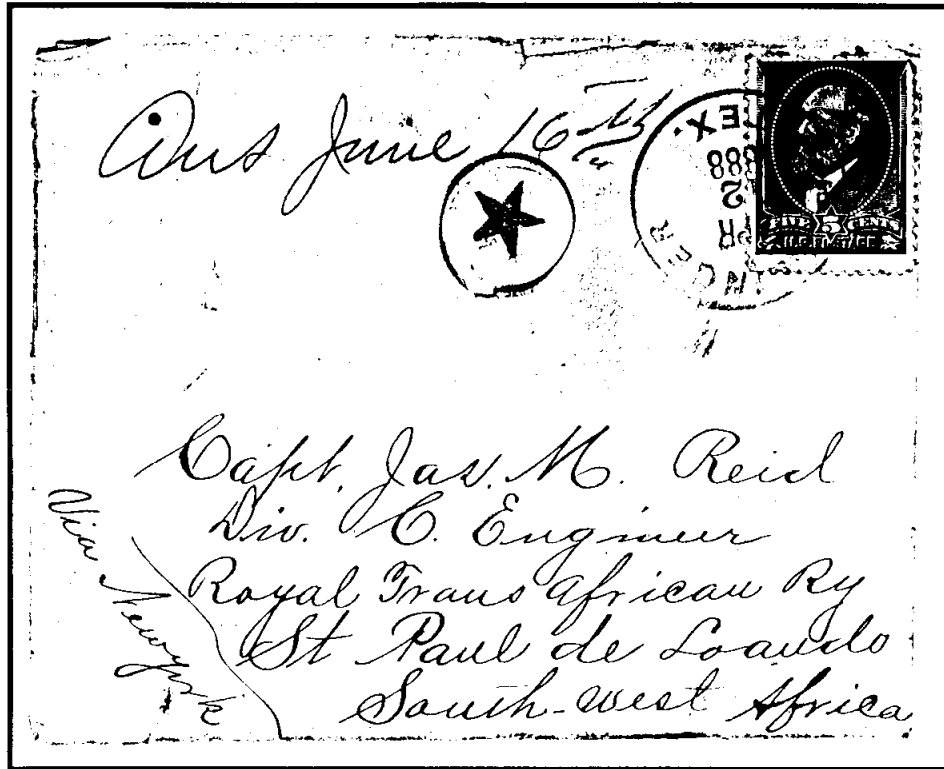 Ans June 16th
TEX.
1888
2
APR
FIVE 5 CENTS
U.S. POSTAGE
Capt. Jas. M. Reid
Div. C. Engineer
Royal Trans African Ry
St Paul de Loando
South-west Africa
Via Newyork